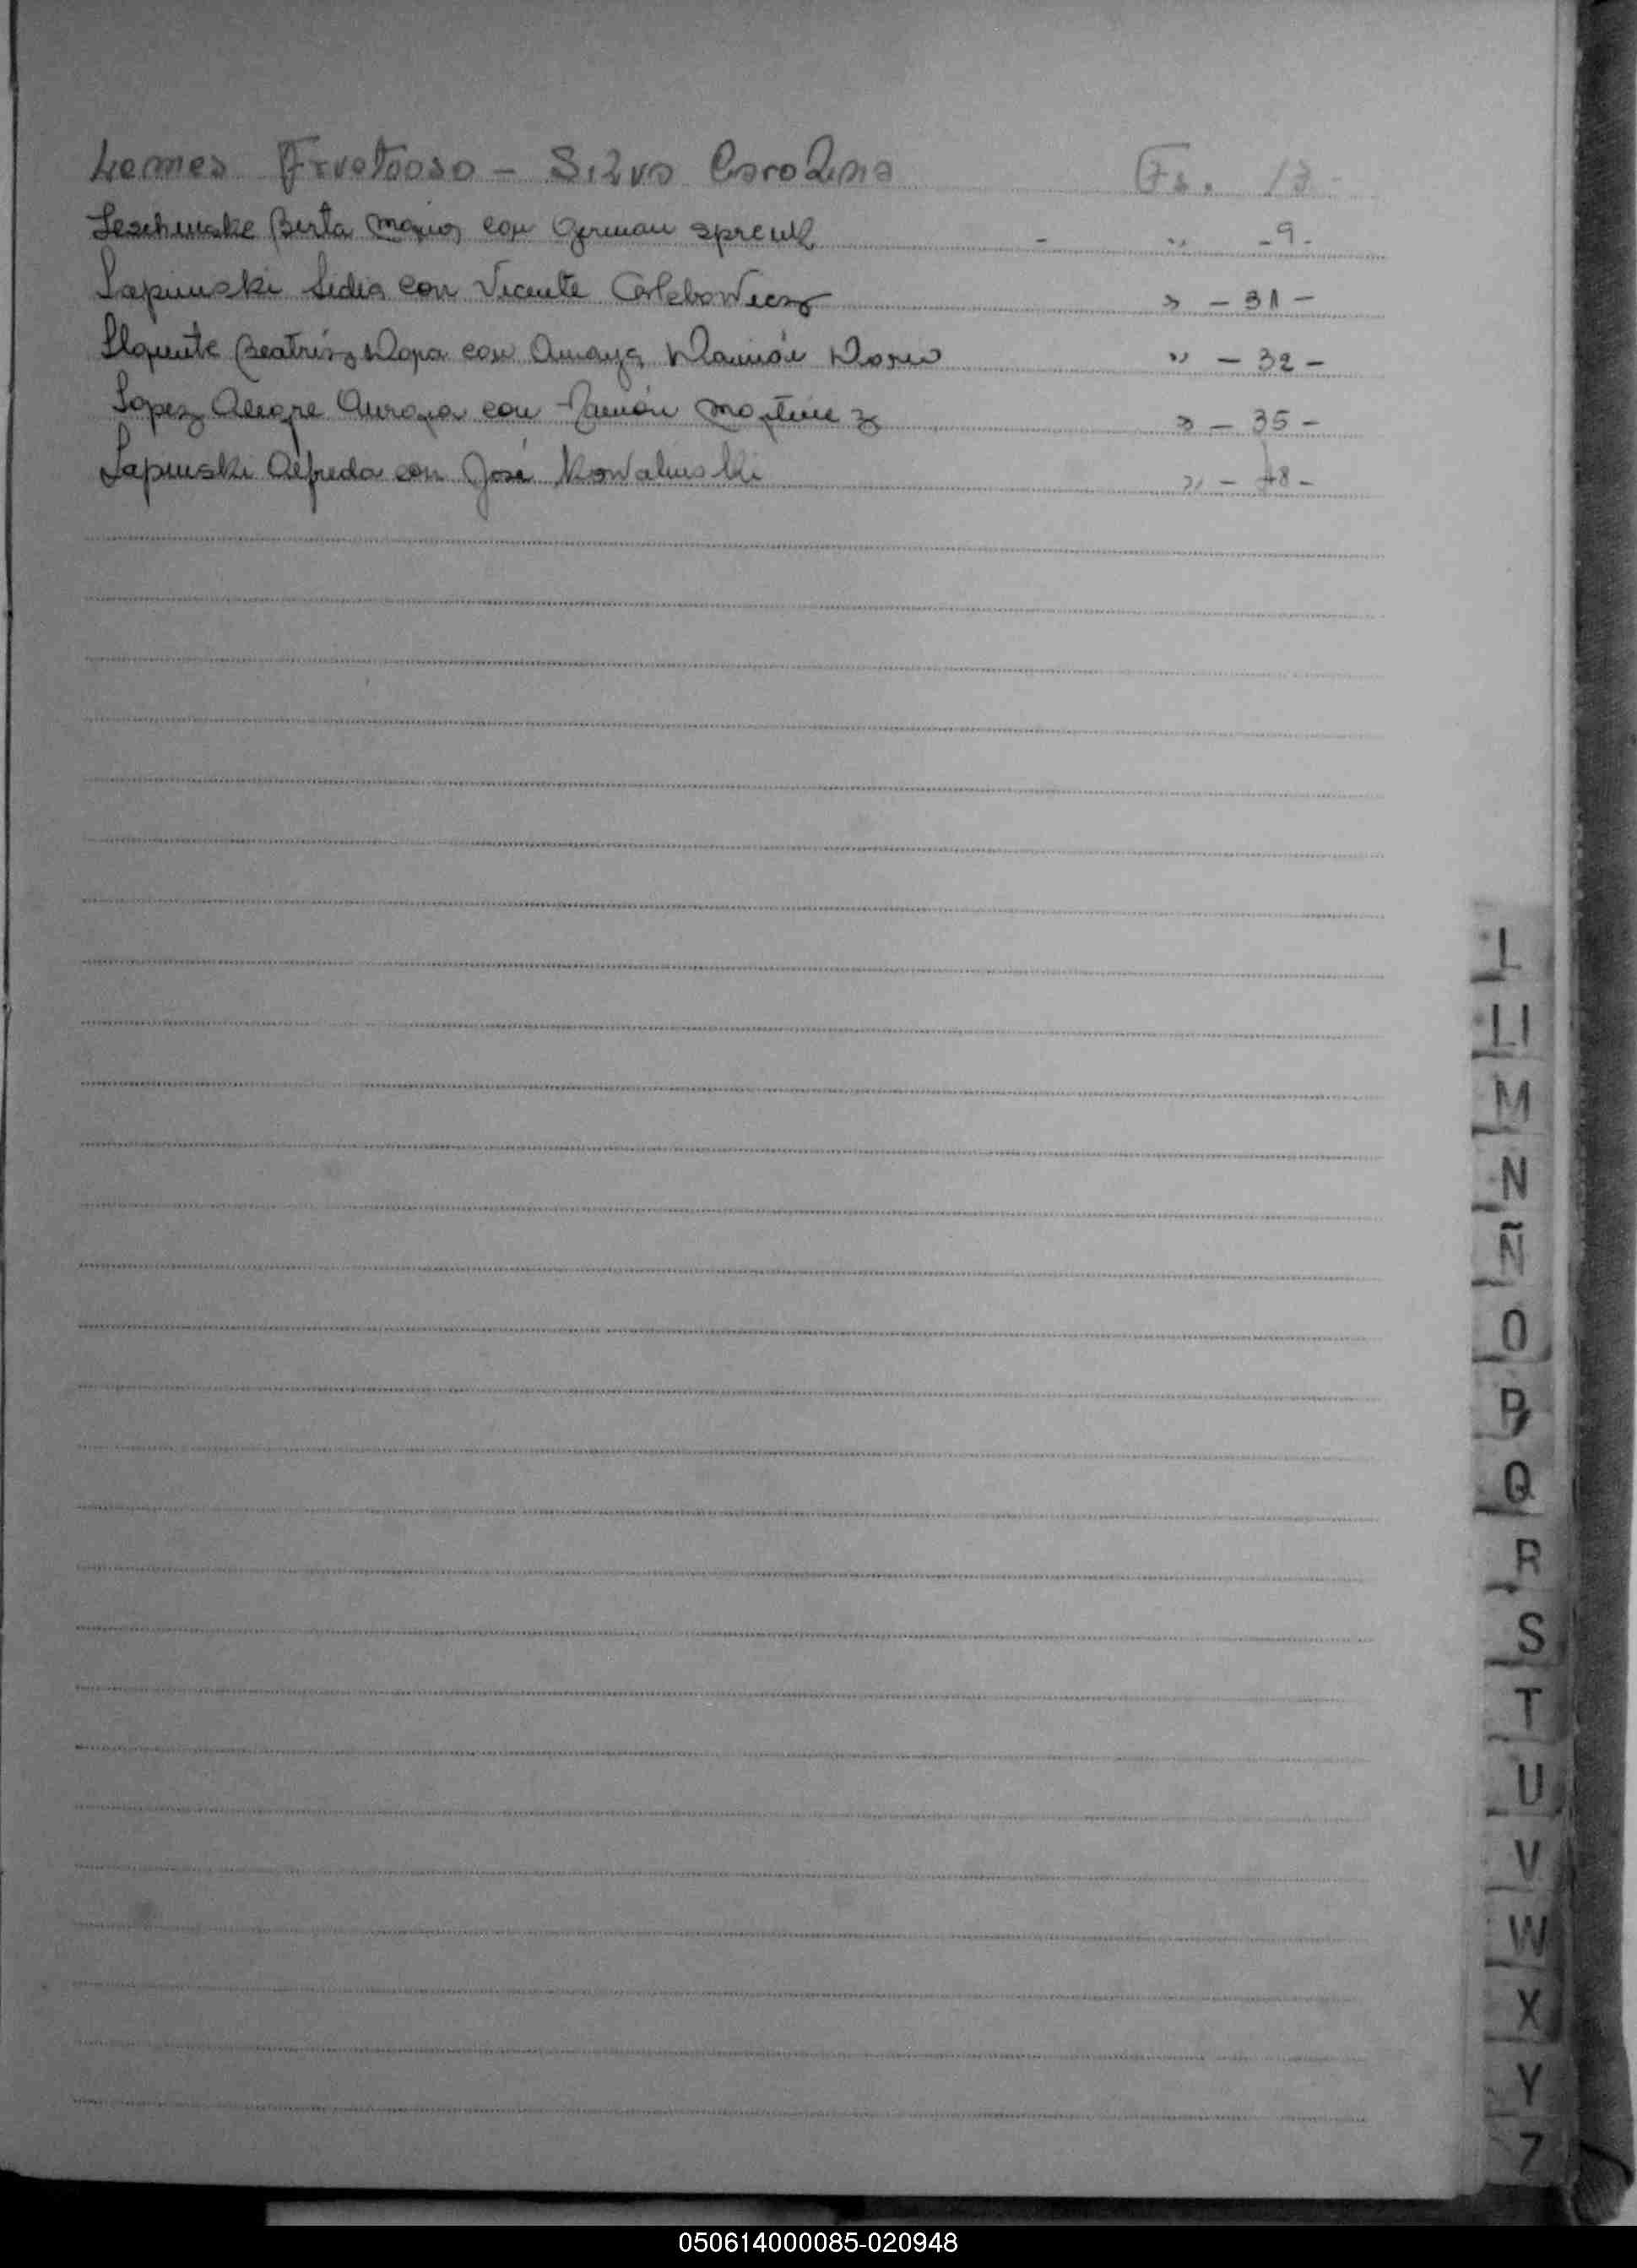 Lemes Fructuoso - Silva Carolina Fs. 13 -
Leschinske Berta María con German Spreng - " - 9 -
Lapinski Lidia con Vicente » - 31 -
Beatríz con Amaya Ramón " - 32 -
Lopez Alegre Aurora con Ramón Martinez » - 35 -
Lapinski Alfreda con José Kowaluski » - 48 -
L
Ll
M
N
Ñ
O
P
Q
R
S
T
U
V
W
X
Y
Z
050614000085-020948